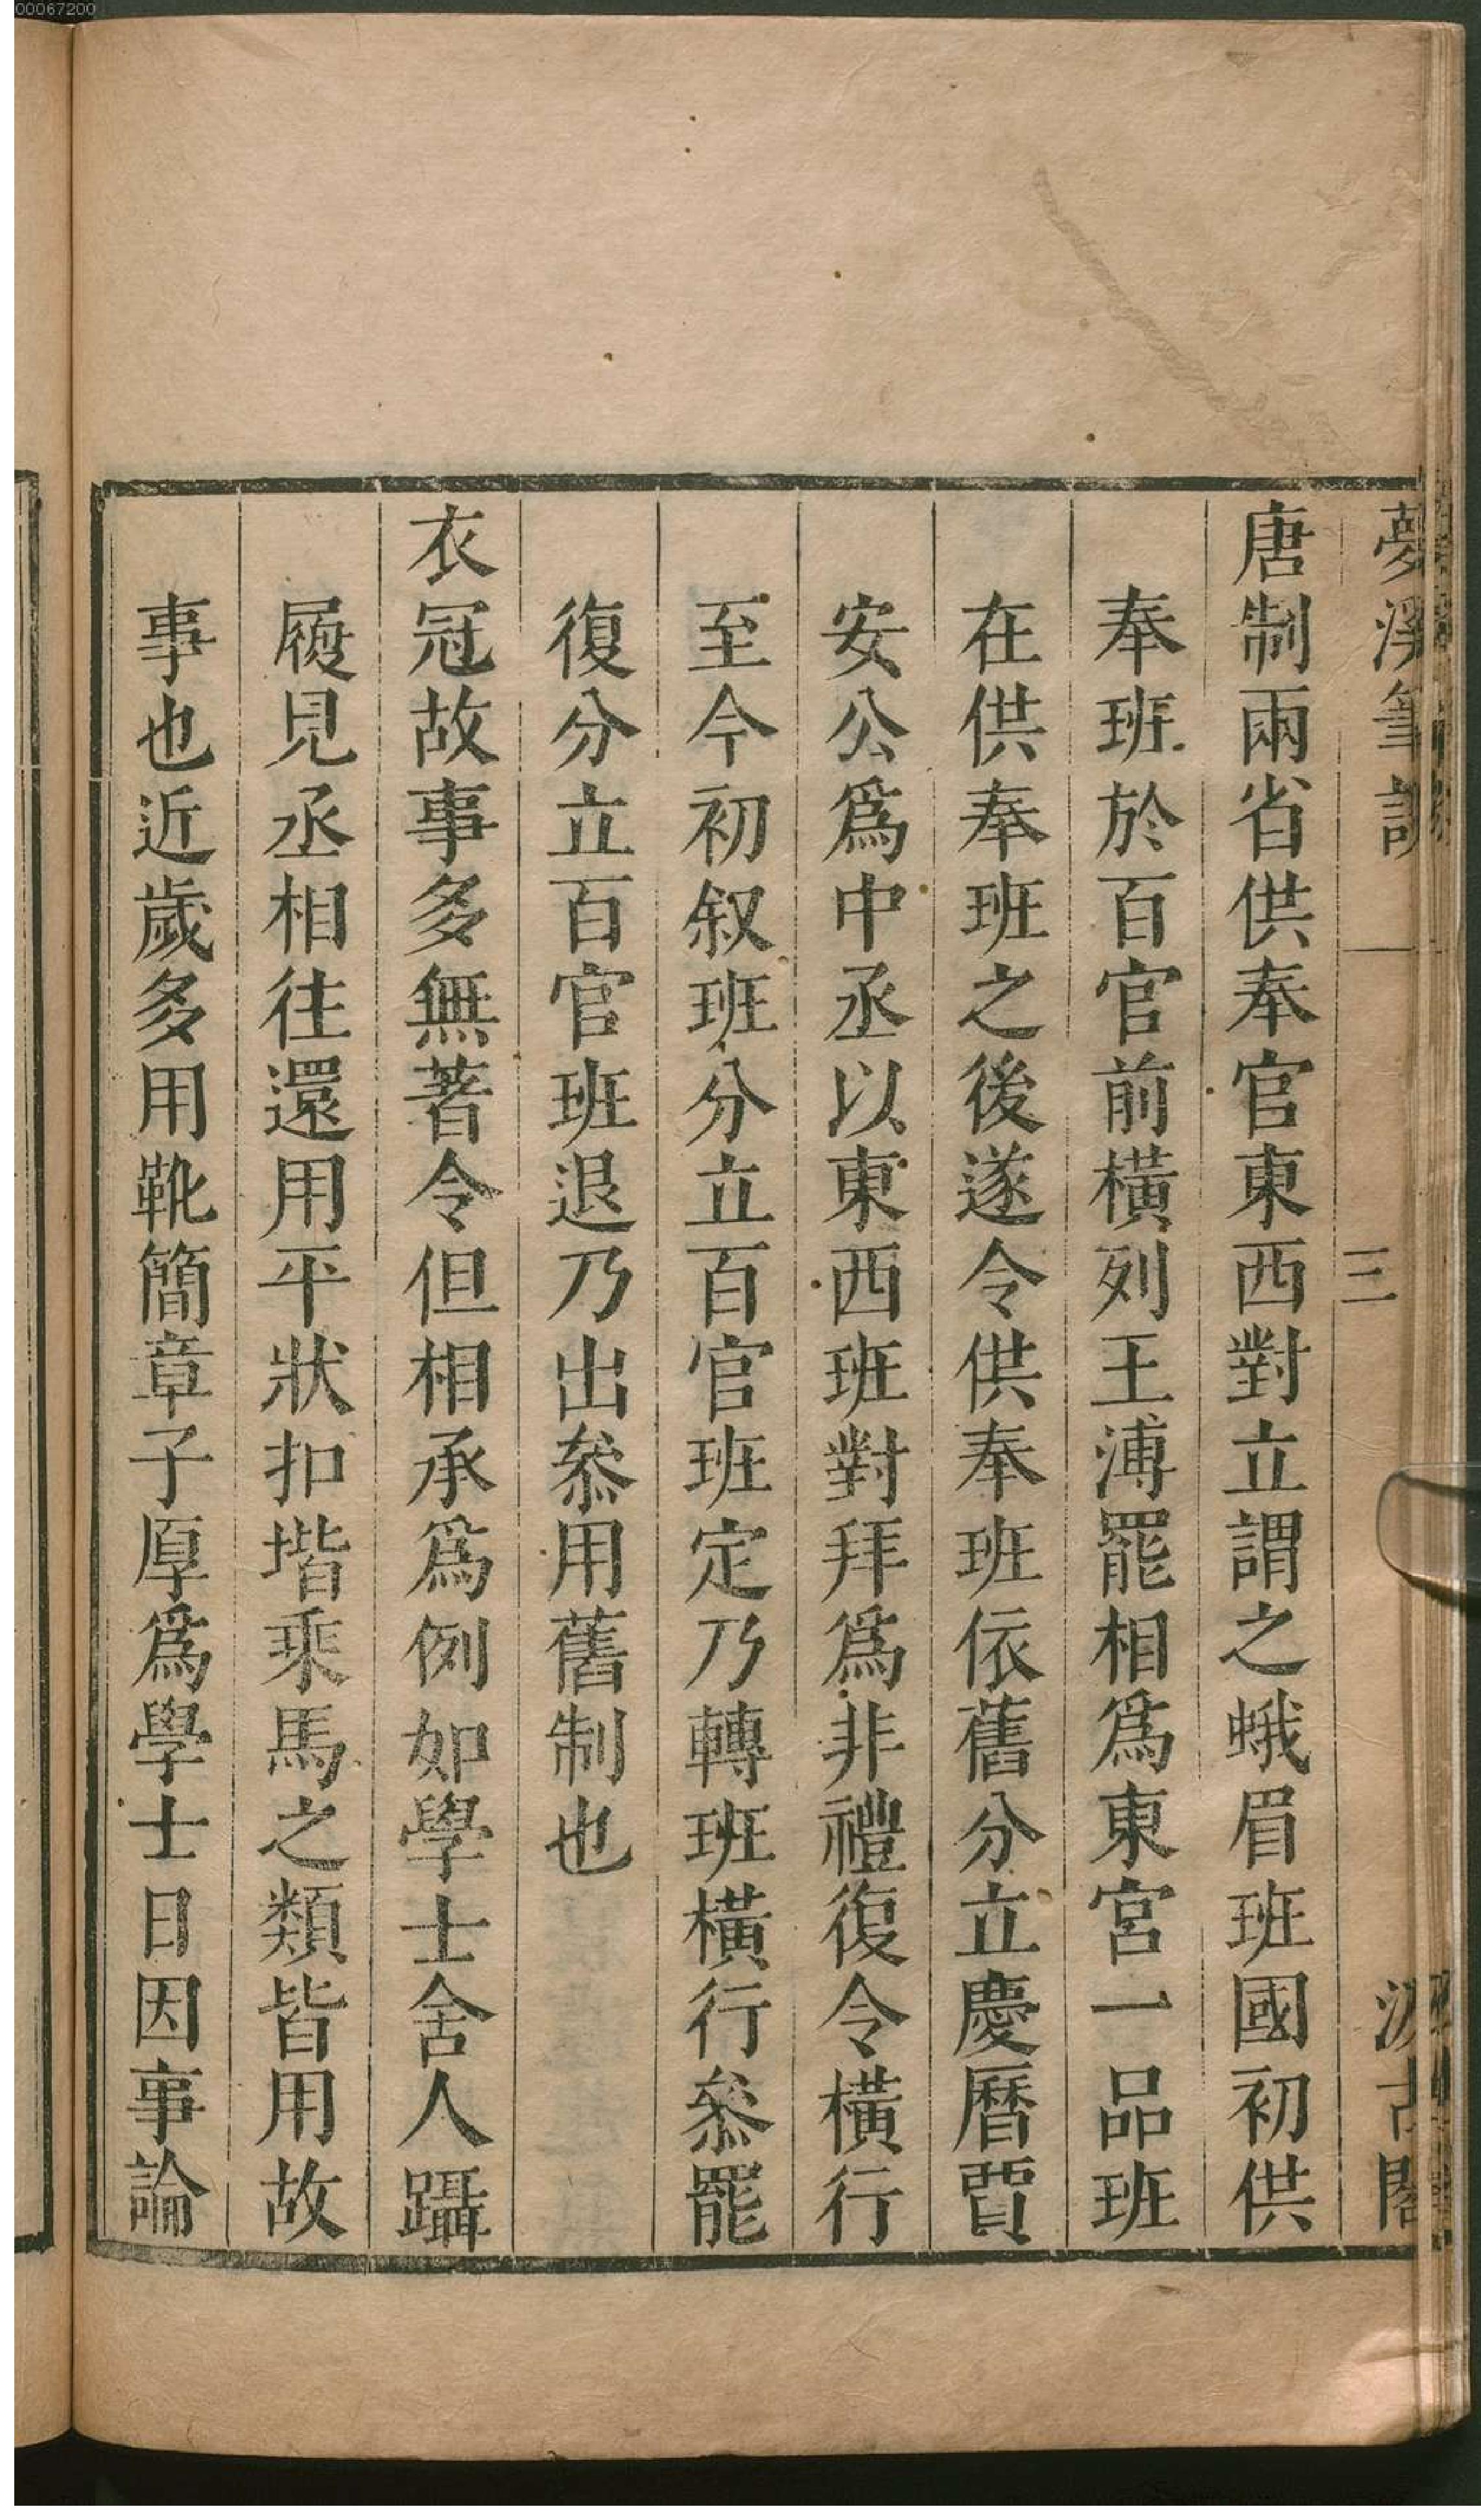 00067200
夢溪筆談
三
汲古閣
唐制兩省供奉官東西對立謂之蛾眉班國初供
奉班於百官前橫列王溥罷相爲東宮一品班
在供奉班之後遂令供奉班依舊分立慶曆賈
安公爲中丞以東西班對拜爲非禮復令橫行
至今初叙班分立百官班定乃轉班橫行叅罷
復分立百官班退乃出叅用舊制也
衣冠故事多無著令但相承爲例如學士舍人躡
履見丞相往還用平狀扣堦乘馬之類皆用故
事也近歲多用靴簡章子厚爲學士日因事論